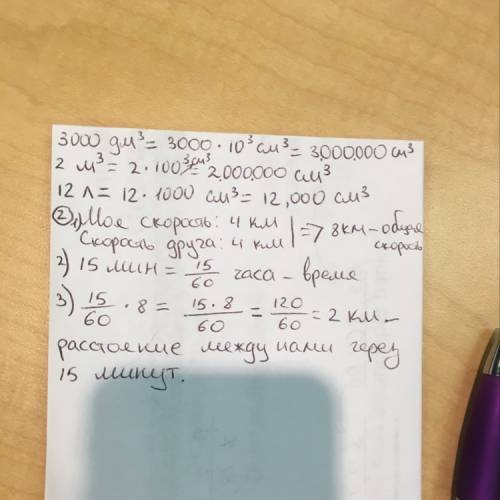 3000 дм³ = 3000 · 10³ см³ = 3,000,000 см³
2 м³ = 2 · 100³ см³ = 2,000,000 см³
12 л = 12 · 1000 см³ = 12,000 см³
② 1) Моя скорость: 4 км | => 8 км – общая
Скорость друга: 4 км | скорость
2) 15 мин = 15/60 часа – время
3) 15/60 · 8 = 15·8/60 = 120/60 = 2 км –
расстояние между нами через
15 минут.